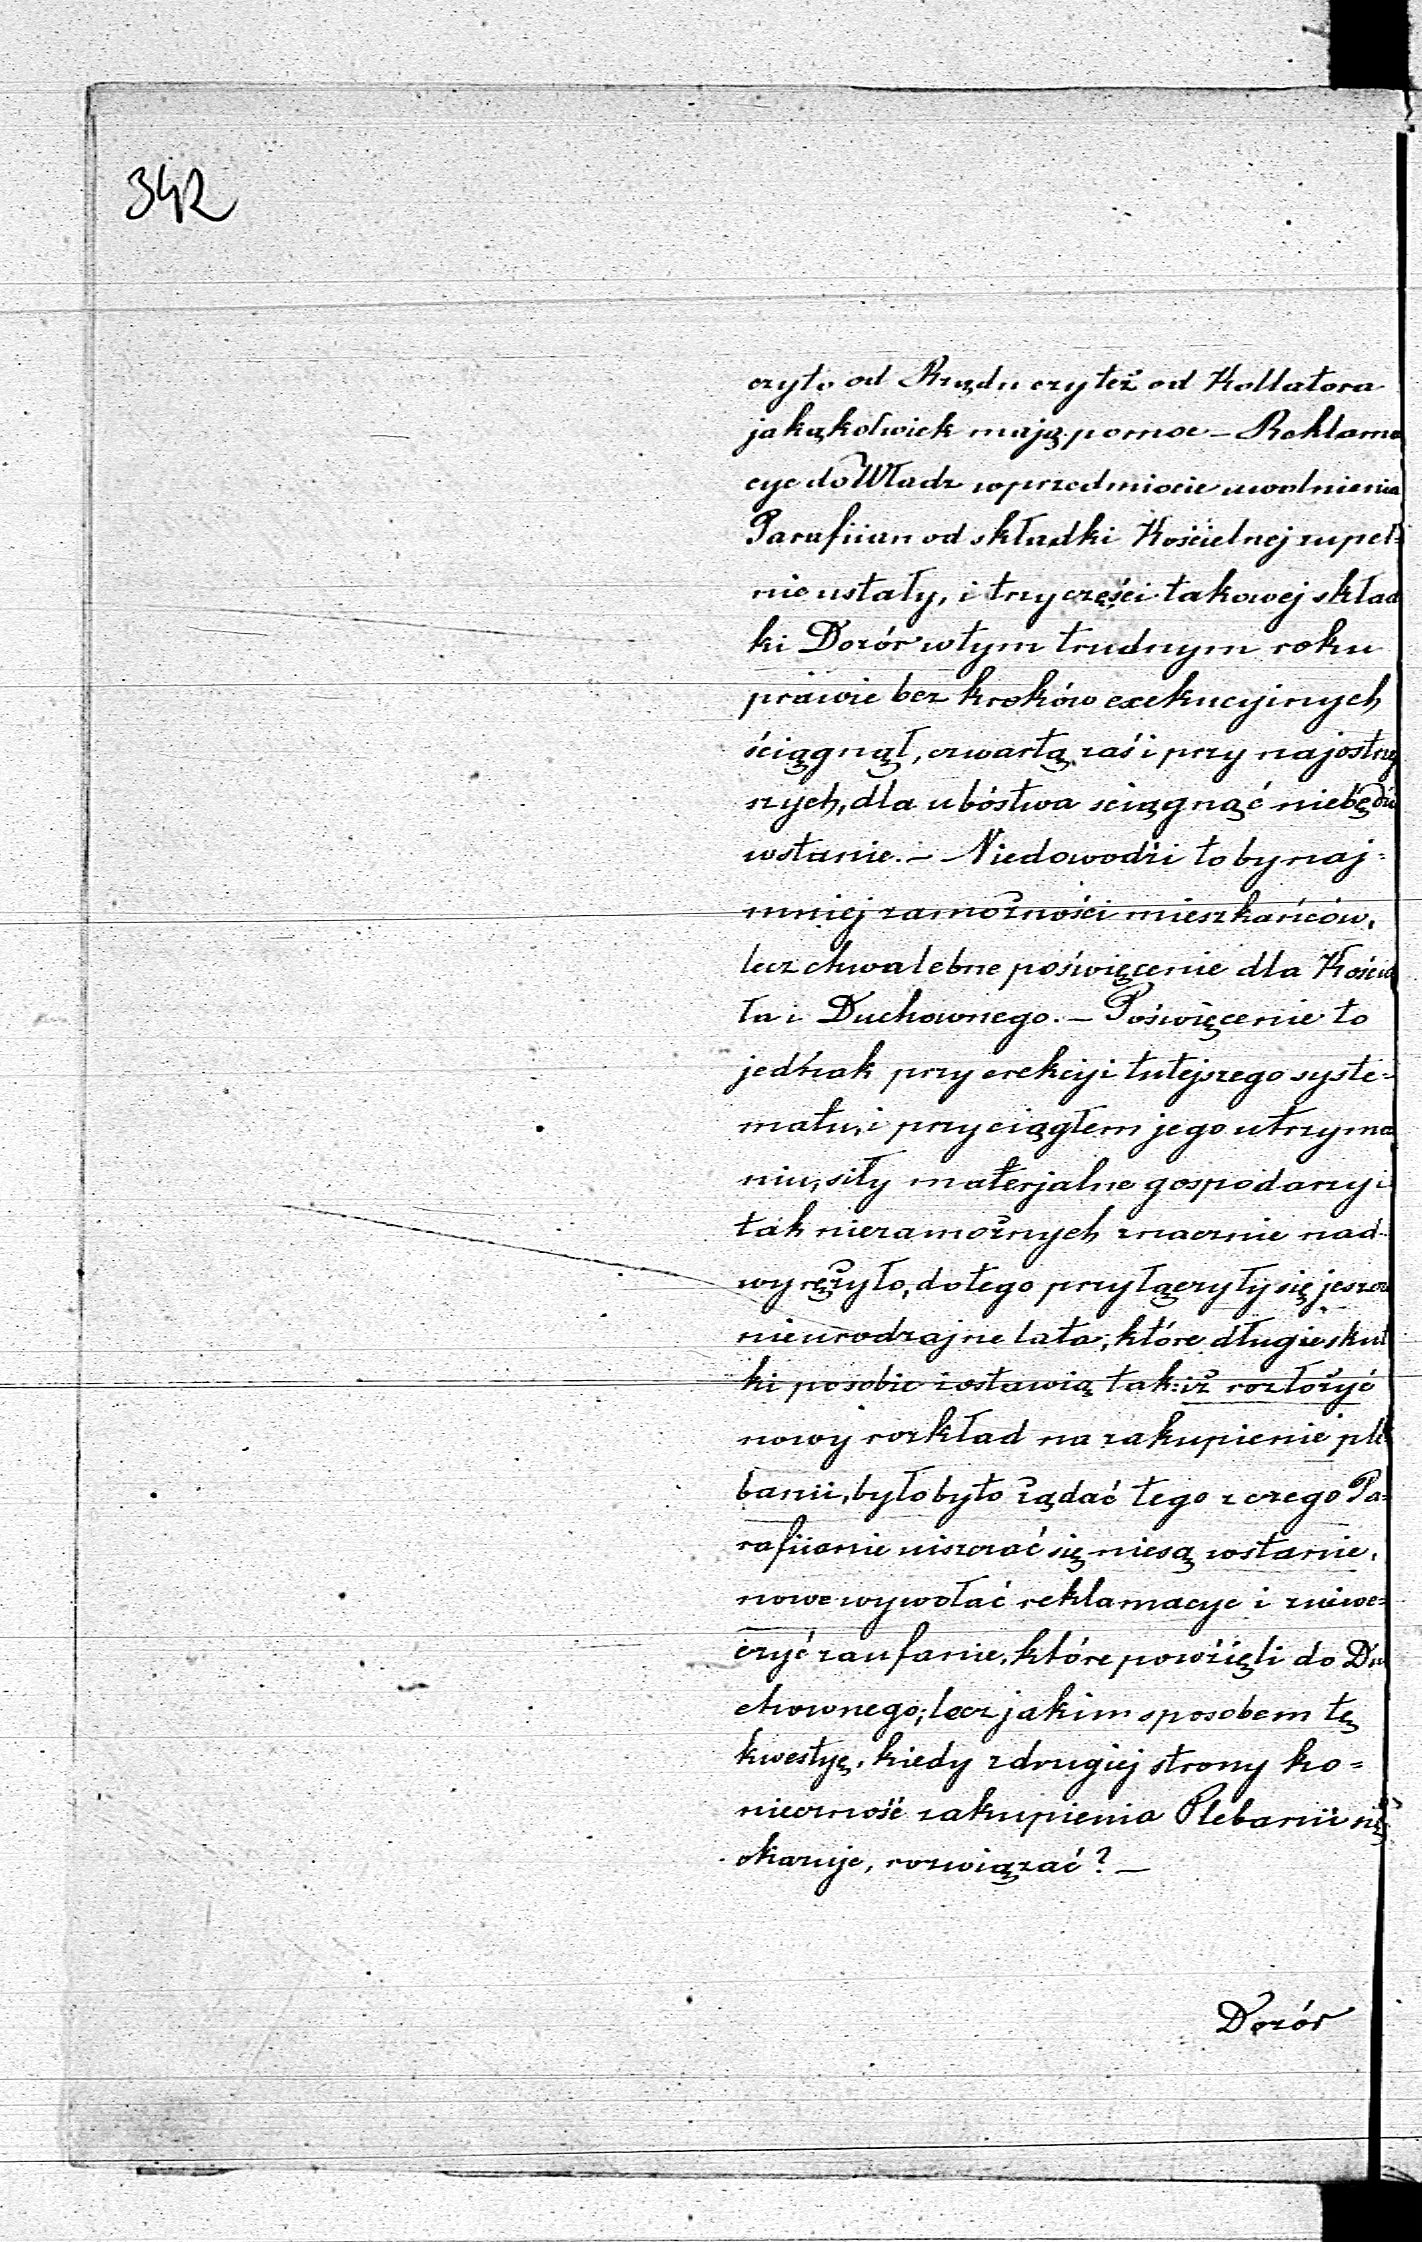 342
czyto od Rządu czyteż od Kollatora
jakąkolwiek mają pomoc – Reklama
cye do Władz wprzedmiocie uwolnienia
Parafiian od składki Kościelnej zupeł=
nie ustały, i trzy części takowej skład
ki Dozór wtym trudnym roku
prawie bez kroków exekucyinych
ściągnął, czwartą zaś i przy najostrzej
szych, dla ubóstwa sciągnąć niebędzie
wstanie. – Niedowodzi to bynaj=
mniej zamożności mieszkańców,
lecz chwalebne poświęcenie dla Kościo
ła i Duchownego. – Poświęcenie to
jednak przy erekcyi tutejszego syste=
matu, i przy ciągłem jego utrzyma
niu, siły materjalne gospodarzy i
tak niezamożnych znacznie nad
wyrężyło, dotego przyłączyły się jeszcze
nieurodzajne lata, które długie skut
ki posobie zostawią tak: iż rozłożyć
nowy rozkład na zakupienie ple
banii, byłobyto żądać tego z czego Pa=
rafiianie uiszczać się niesą wstanie,
nowe wywołać reklamacye i zniwe=
czyć zaufanie, które powzięli do Du
chownego; lecz jakim sposobem tę
kwestyę, kiedy zdrugiej strony ko=
nieczność zakupienia Plebanii się
okazuje, rozwiązać? –
Dozór